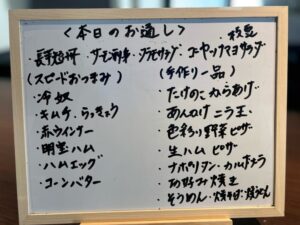 <本日のお通し>
枝豆
・長芋短冊・サーモン刺身・ジラモサラダ・ゴーヤツナマヨサラダ
(スピードおつまみ)
・冷奴
・キムチ、らっきょう
・赤ウインナー
・明宝ハム
・ハムエッグ
・コーンバター
(手作り一品)
・たけのこからあげ
・あんかけニラ玉
・色彩り野菜ピザ
・生ハムピザ
・ナポリタン・カルボナラ
・お好み焼き
・そうめん・焼そば・焼うどん